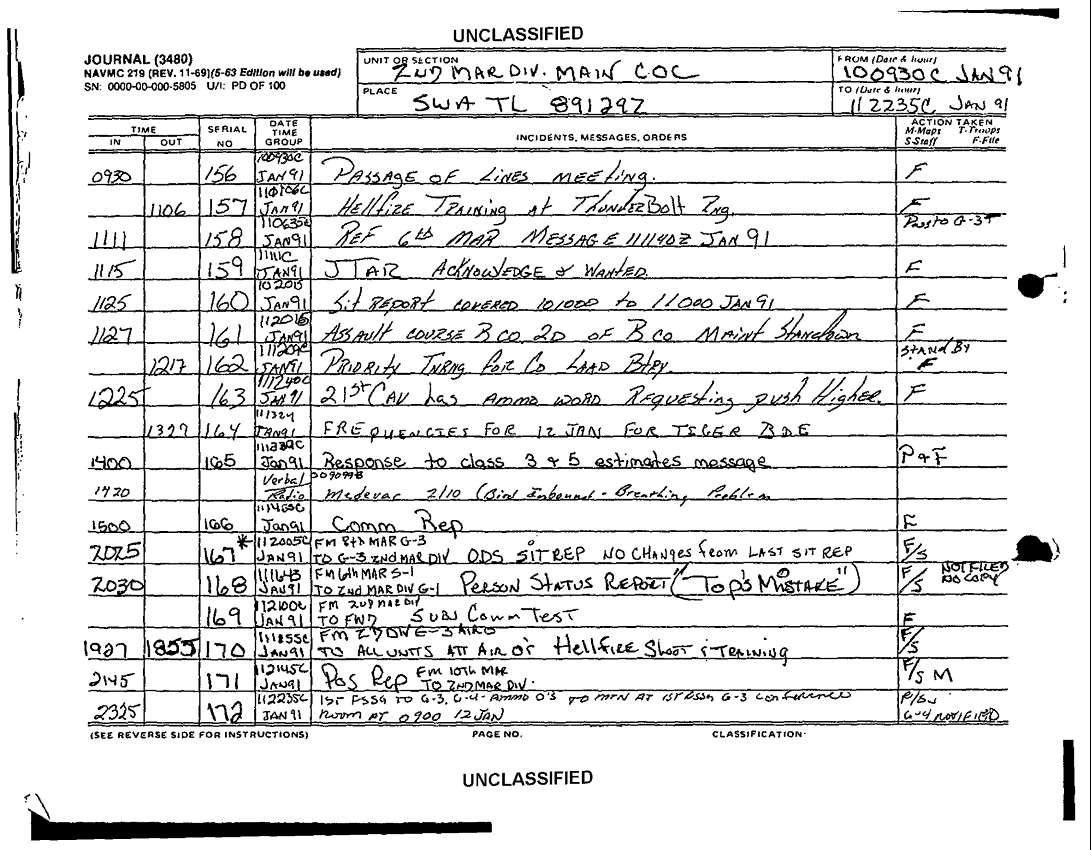 UNCLASSIFIED
JOURNAL (3480)
NAVMC 219 (REV. 11-69)(5-63 Edition will be used)
SN: 0000-00-000-5805 U/I: PD OF 100
UNIT OR SECTION
2ND MAR DIV. MAIN COC
FROM (Date & hour)
100930C JAN 91
PLACE
SWA TL 891292
TO (Date & hour)
112235C JAN 91
TIME
IN OUT
SERIAL NO
DATE TIME GROUP
INCIDENTS, MESSAGES, ORDERS
ACTION TAKEN
M-Maps T-Troops
S-Staff F-File
0930 156 100930C JAN91 PASSAGE OF LINES MEETING. F
1106 157 110106C JAN91 HELLFIRE TRAINING AT THUNDERBOLT RNG. F
1111 158 110635Z JAN91 REF 6th MAR MESSAGE 111140Z JAN 91 Pass to G-3
1115 159 1111C JAN91 JTAR ACKNOWLEDGE & WANTED. F
1125 160 102015 JAN91 Sit REPORT COVERED 101000 to 11000 JAN 91 F
1127 161 112015 JAN91 ASSAULT COURSE B CO. 2D OF B CO MAINT Standdown F
1217 162 111209C JAN91 PRIORITY TNRNG FOR CO LAAD Btry. STAND BY F
1225 163 111240C JAN 91 21st CAV has AMMO WORD REQUESTING push Higher. F
1327 164 111324 JAN91 FREQUENCIES FOR 12 JAN FOR TIGER BDE
1400 165 Jan91 Response to class 3 & 5 estimates message P & F
1420 Verbal Radio Medevac 2/10 (Bird Inbound - Breathing Problem
1500 166 111455C Jan91 Comm Rep F
2025 167* 112005C JAN 91 FM 8th MAR G-3
TO G-3 2ND MAR DIV ODS SITREP NO CHANGES from LAST SIT REP F/S
2030 168 111643 JAN91 FM 6th MAR S-1
TO 2nd MAR DIV G-1 PERSON STATUS REPORT ("TOP'S MISTAKE") F/S NOT FILED NO COPY
169 112100C JAN 91 FM 2ND MAR DIV
TO FWD SUBJ Comm TEST F
1927 1855 170 111855C JAN91 FM 2D DIV G-3 AIRO
TO ALL UNITS ATT AIR O's Hellfire Shoot & TRAINING F/S
2145 171 112145C JAN91 Pos Rep FM 10TH MAR
TO 2ND MAR DIV. F/S M
2325 172 112235C JAN 91 1ST FSSG TO G-3, G-4 - AMMO O'S TO MTN AT 1ST FSSG G-3 Conference
ROOM AT 0900 12 JAN G-4 NOTIFIED
(SEE REVERSE SIDE FOR INSTRUCTIONS) PAGE NO. CLASSIFICATION
UNCLASSIFIED